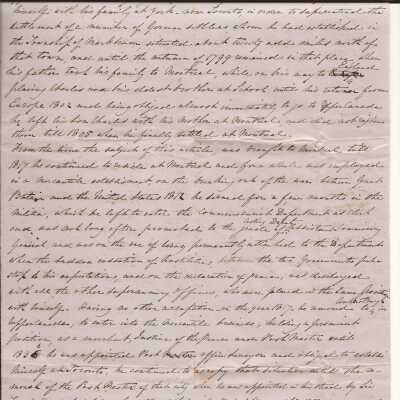 himself with his family at York now Toronto in order to superintend the
settlement of a number of German settlers whom he had established in
the Township of Markham situated about twenty odd miles north of
that town, and until the autumn of 1799 remained in that place when
his father took his family to Montreal, while on his way to England
placing Charles and his eldest brother at School until his return from
Europe 1802 and being obliged almost immediately to go to Upper Canada
he left his son Charles with his mother at Montreal and did not rejoin
them till 1805 when he finally settled at Montreal.
From the time the subject of this article was brought to Montreal till
1817 he continued to reside at Montreal and for a while was employed
in a mercantile establishment, on the breaking out of the war between Great
Britain and the United States 1812 he served for a few months in the
militia, which he left to enter the Commissariat Department as clerk
and was not long after promoted to the grade of Acting Deputy Assistant Commissary
General and was on the eve of being permanently attached to the Department
when the sudden cessation of hostilities between the two Governments put a
stop to his expectations, and on the declaration of peace, was discharged
with all the other supernumerary officers, who were placed in the same position
with himself. Having no other occupation in the year 1817, he removed to
Upper Canada, to enter into the mercantile business, holding a prominent
position, as a merchant, Justice of the Peace and Post Master until
183 he was appointed Post office Surveyor and obliged to establish
himself at Toronto, he continued to occupy that situation until the
of the Post Master of that city who was appointed in his stead by Sir